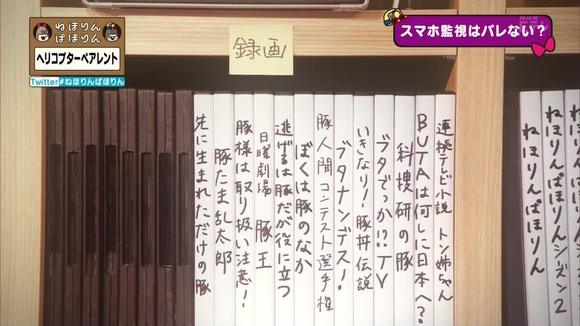 ねほりん
ぱほりん
ヘリコプターペアレント
Twitter#ねほりんぱほりん
NHK
スマホ監視はバレない？
録画
連続テレビ小説 トン姉ちゃん
BUTAは何しに日本へ？
科捜研の豚
ブタでっか!?TV
いきなり！豚丼伝説
ブタナンデス！
豚人間コンテスト選手権
ぼくは豚のなか
逃げるは豚だが役に立つ
日曜劇場 豚王
豚様は取り扱い注意！
豚たま乱太郎
先に生まれただけの豚
ねほりんぱほりんシーズン2
ねほりんぱほりん
ねほりんぱほりん